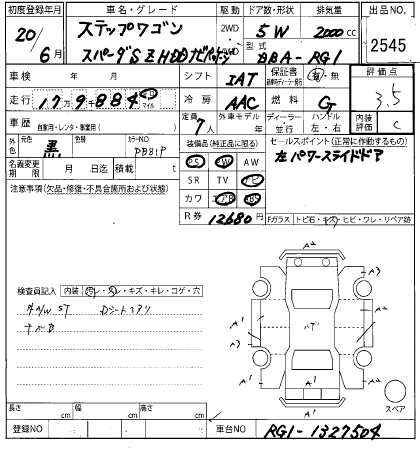 初度登録年月 車名・グレード 駆動 ドア数・形状 排気量 出品NO.
20/6月 ステップワゴン 2WD 5W 2000cc 2545
スパーダSZ HDDナビパッケージ 4WD 型式 DBA-RG1
車検 年 月 シフト IAT 保証書 有・無 評価点 3.5
走行 17万9千884 km マイル 冷房 AAC 燃料 G 内装評価 C
車歴 自家用・レンタ・事業用( ) 定員 7人 外車モデル 年 ディーラー・並行 ハンドル 左・右
外色 元色 黒 色替 カラーNO 装備品(純正品に限る) セールスポイント(正常に作動するもの)
名義変更期限 月 日迄 積載 t PS PW AW 左パワースライドドア
注意事項(欠品・修復・不具合箇所および状態) SR TV ナビ
カワ エアB ABS
R券 12680円 Fガラス トビ石・キズ・ヒビ・ワレ・リペア跡
A2
A3
A1
検査員記入 内装 汚レ・スレ・キズ・キレ・コゲ・穴
A1
A3
A2
A1
スペア
長さ cm 幅 cm 高さ cm
登録NO 車台NO RG1-1327504